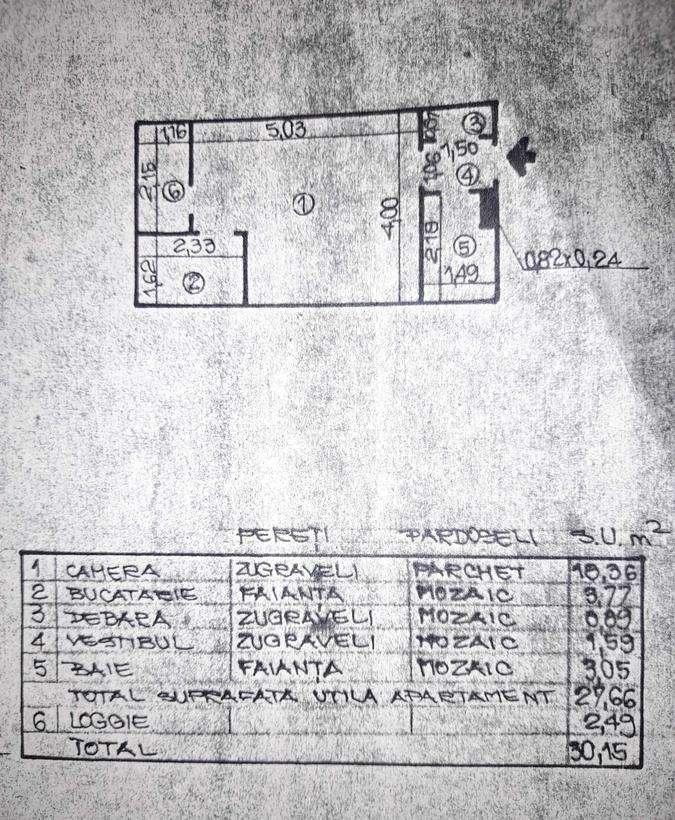 1,16 5,03 3
1,50
1,06 4
2,15 6
1 4,00
2,33 2,18 5
0,82x0,24
1,62 2 1,49
PEREȚI PARDOSELI S.U. m²
1 CAMERA ZUGRAVELI PARCHET 18,36
2 BUCATARIE FAIANȚA MOZAIC 3,77
3 DEBARA ZUGRAVELI MOZAIC 0,89
4 VESTIBUL ZUGRAVELI MOZAIC 1,59
5 BAIE FAIANȚA MOZAIC 3,05
TOTAL SUPRAFATA UTILA APARTAMENT 27,66
6 LOGGIE 2,49
TOTAL 30,15